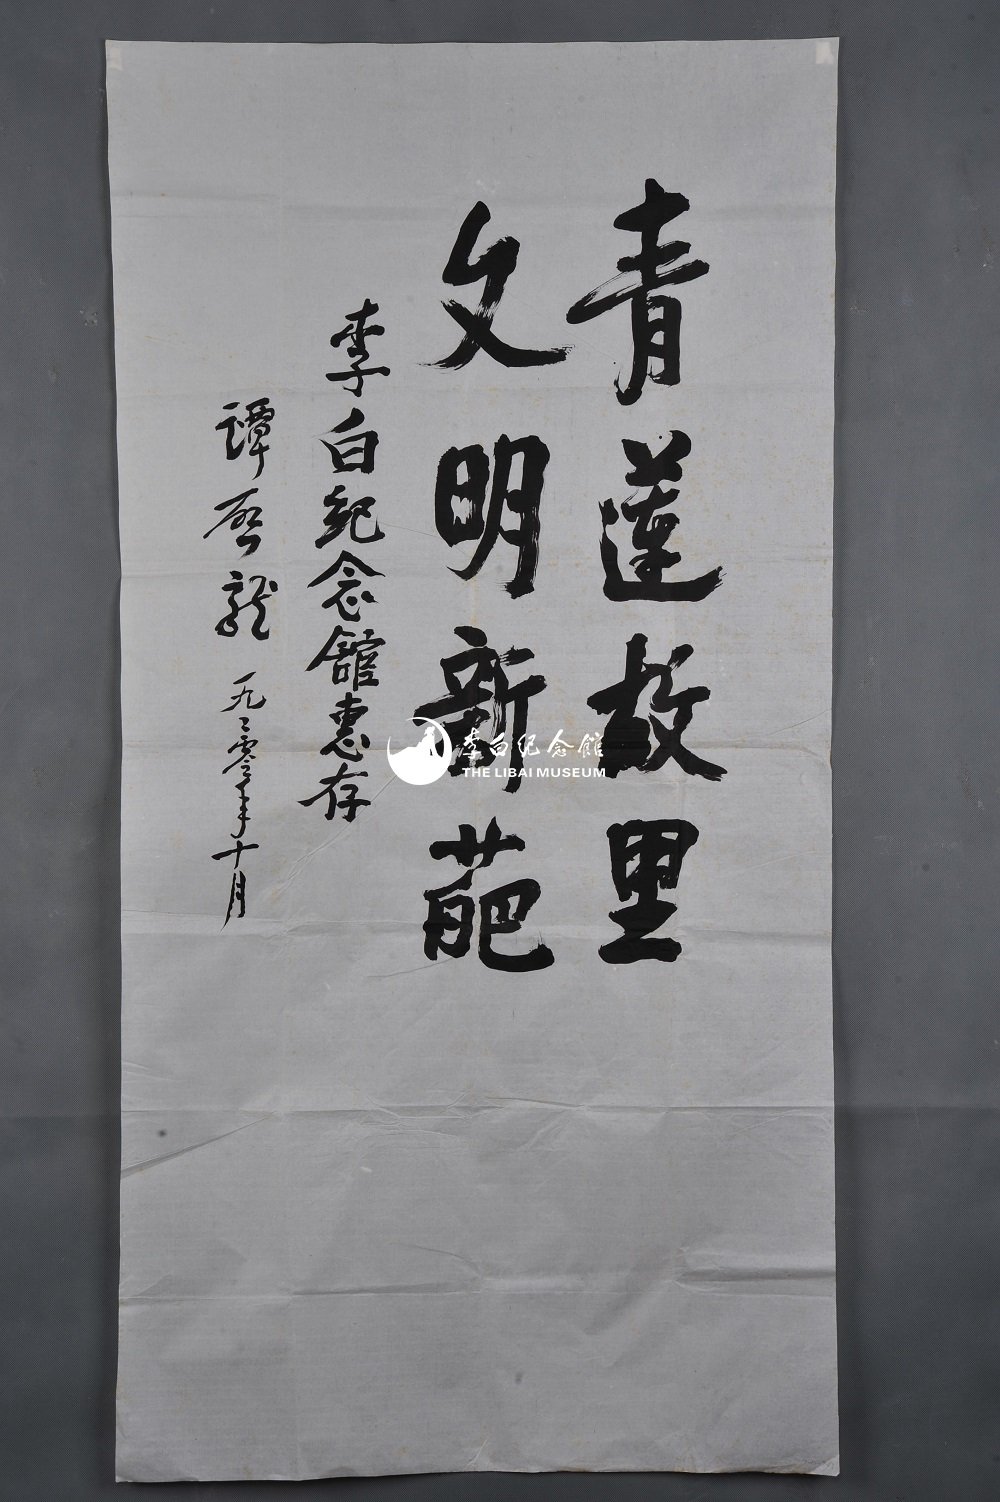 青蓮故里
文明新葩
李白紀念館惠存
譚啟龍 一九〻零年十月
李白纪念館
THE LIBAI MUSEUM